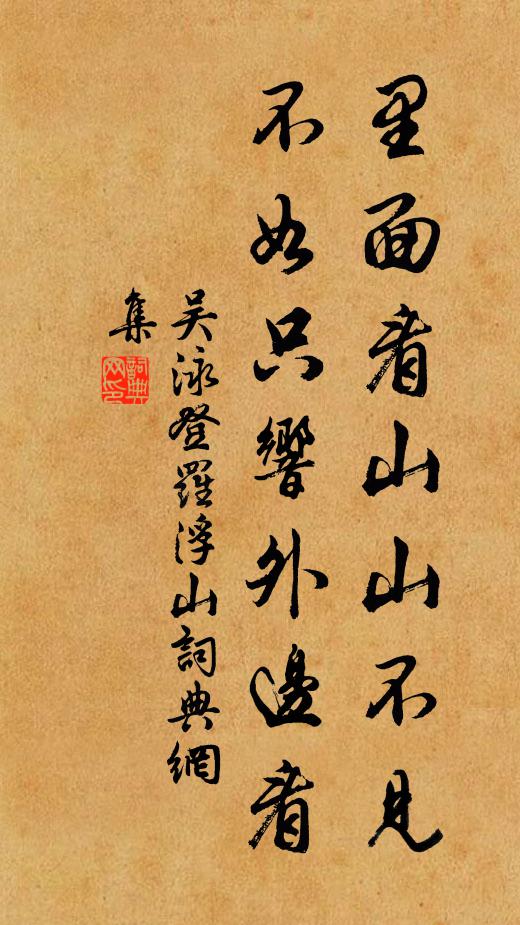 里面看山山不見
不如只響外邊看
吴泳登羅浮山詞典網
集
詞典网印